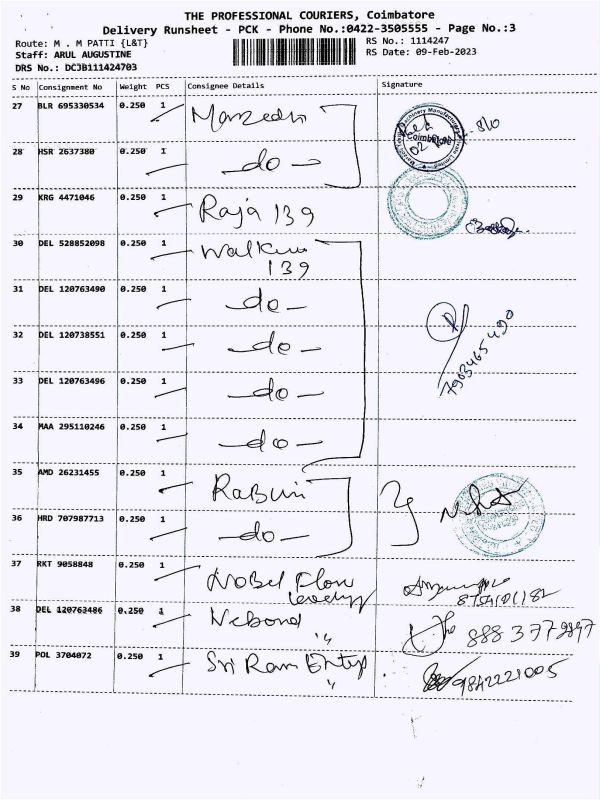 THE PROFESSIONAL COURIERS, Coimbatore
Delivery Runsheet - PCK - Phone No.:0422-3505555 - Page No.:3
Route: M . M PATTI {L&T}
RS No.: 1114247
Staff: ARUL AUGUSTINE
RS Date: 09-Feb-2023
DRS No.: DCJB111424703
S No Consignment No Weight PCS Consignee Details Signature
27 BLR 695330534 0.250 1
28 HSR 2637380 0.250 1 -do-
29 KRG 4471046 0.250 1 Raja 139
30 DEL 528852098 0.250 1
139
31 DEL 120763490 0.250 1 -do-
32 DEL 120738551 0.250 1 -do-
7903465490
33 DEL 120763496 0.250 1 -do-
34 MAA 295110246 0.250 1 -do-
35 AMD 26231455 0.250 1
36 HRD 707987713 0.250 1 -do-
37 RKT 9058848 0.250 1 Nobel Flow
38 DEL 120763486 0.250 1 "
39 POL 3704072 0.250 1 Sri Ram 9842221005
"